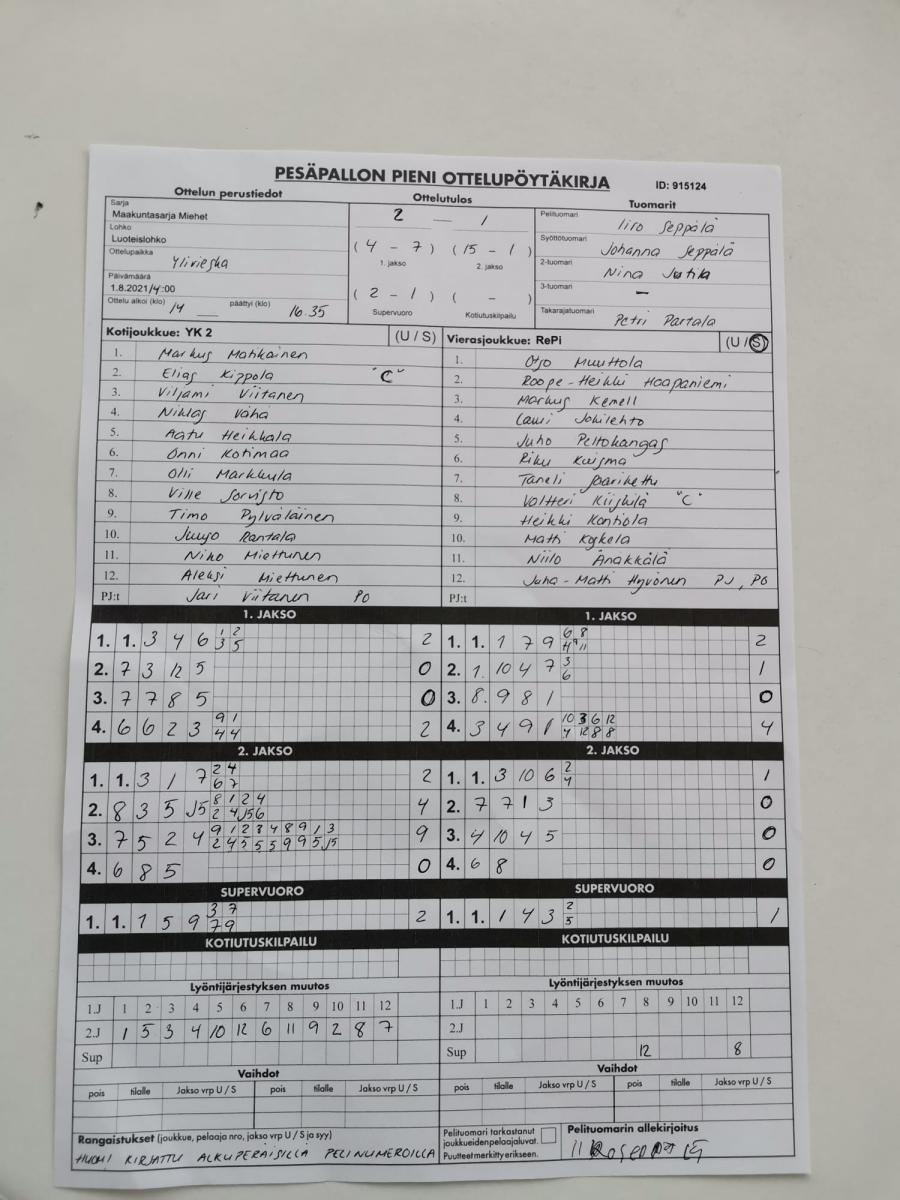 PESÄPALLON PIENI OTTELUPÖYTÄKIRJA
ID: 915124
Ottelun perustiedot
Sarja
Maakuntasarja Miehet
Lohko
Luoteislohko
Ottelupaikka
Ylivieska
Päivämäärä
1.8.2021/4:00
Ottelu alkoi (klo) 14 päättyi (klo) 16.35
Ottelutulos
2 — 1
( 4 - 7 ) ( 15 - 1 )
1. jakso 2. jakso
( 2 - 1 ) ( - )
Supervuoro Kotiutuskilpailu
Tuomarit
Pelituomari
Iiro Seppälä
Syöttötuomari
Johanna Seppälä
2-tuomari
Nina Jutila
3-tuomari
–
Takarajatuomari
Petri Partala
Kotijoukkue: YK 2 (U / S)
1. Markus Matikainen
2. Elias Kippola "C"
3. Viljami Viitanen
4. Niklas Vähä
5. Aatu Heikkala
6. Onni Kotimaa
7. Olli Markkula
8. Ville Sorvisto
9. Timo Pylväläinen
10. Juujo Rantala
11. Niko Miettunen
12. Aleksi Miettunen
PJ:t Jari Viitanen PO
Vierasjoukkue: RePi (U / S)
1. Otso Muuttola
2. Roope-Heikki Haapaniemi
3. Markus Kemell
4. Lauri Jokilehto
5. Juho Peltokangas
6. Riku Kuisma
7. Taneli Saarikettu
8. Valtteri Kiiskilä "C"
9. Heikki Kontiola
10. Matti Kykela
11. Niilo Änäkkälä
12. Juha-Matti Hyvönen PJ, PO
PJ:t
1. JAKSO
1. 1. 3 4 6 1 2 2
3 5
2. 7 3 12 5 0
3. 7 7 8 5 0
4. 6 6 2 3 9 1 2
4 4
2. JAKSO
1. 1. 3 1 7 2 4 2
6 7
2. 8 3 5 15 8 1 2 4 4
2 4 15 6
3. 7 5 2 4 9 1 2 3 4 8 9 1 3 9
2 4 5 5 5 9 9 5 15
4. 6 8 5 0
SUPERVUORO
1. 1. 1 5 9 3 7 2
7 9
KOTIUTUSKILPAILU
1. JAKSO
1. 1. 1 7 9 6 8 2
4 9 11
2. 1. 10 4 7 3 1
6
3. 8. 9 8 1 0
4. 3 4 9 1 10 3 6 12 4
4 12 8 8
2. JAKSO
1. 1. 3 10 6 2 1
4
2. 7 7 1 3 0
3. 4 10 4 5 0
4. 6 8 0
SUPERVUORO
1. 1. 1 4 3 2 1
5
KOTIUTUSKILPAILU
Lyöntijärjestyksen muutos
1.J 1 2 3 4 5 6 7 8 9 10 11 12
2.J 1 5 3 4 10 12 6 11 9 2 8 7
Sup
Vaihdot
pois tilalle Jakso vrp U / S pois tilalle Jakso vrp U / S
Lyöntijärjestyksen muutos
1.J 1 2 3 4 5 6 7 8 9 10 11 12
2.J
Sup 12 8
Vaihdot
pois tilalle Jakso vrp U / S pois tilalle Jakso vrp U / S
Rangaistukset (joukkue, pelaaja nro, jakso vrp U / S ja syy)
HUOM! KIRJATTU ALKUPERÄISILLÄ PELINUMEROILLA
Pelituomari tarkastanut
joukkueidenpelaajaluvat.
Puutteet merkitty erikseen.
Pelituomarin allekirjoitus